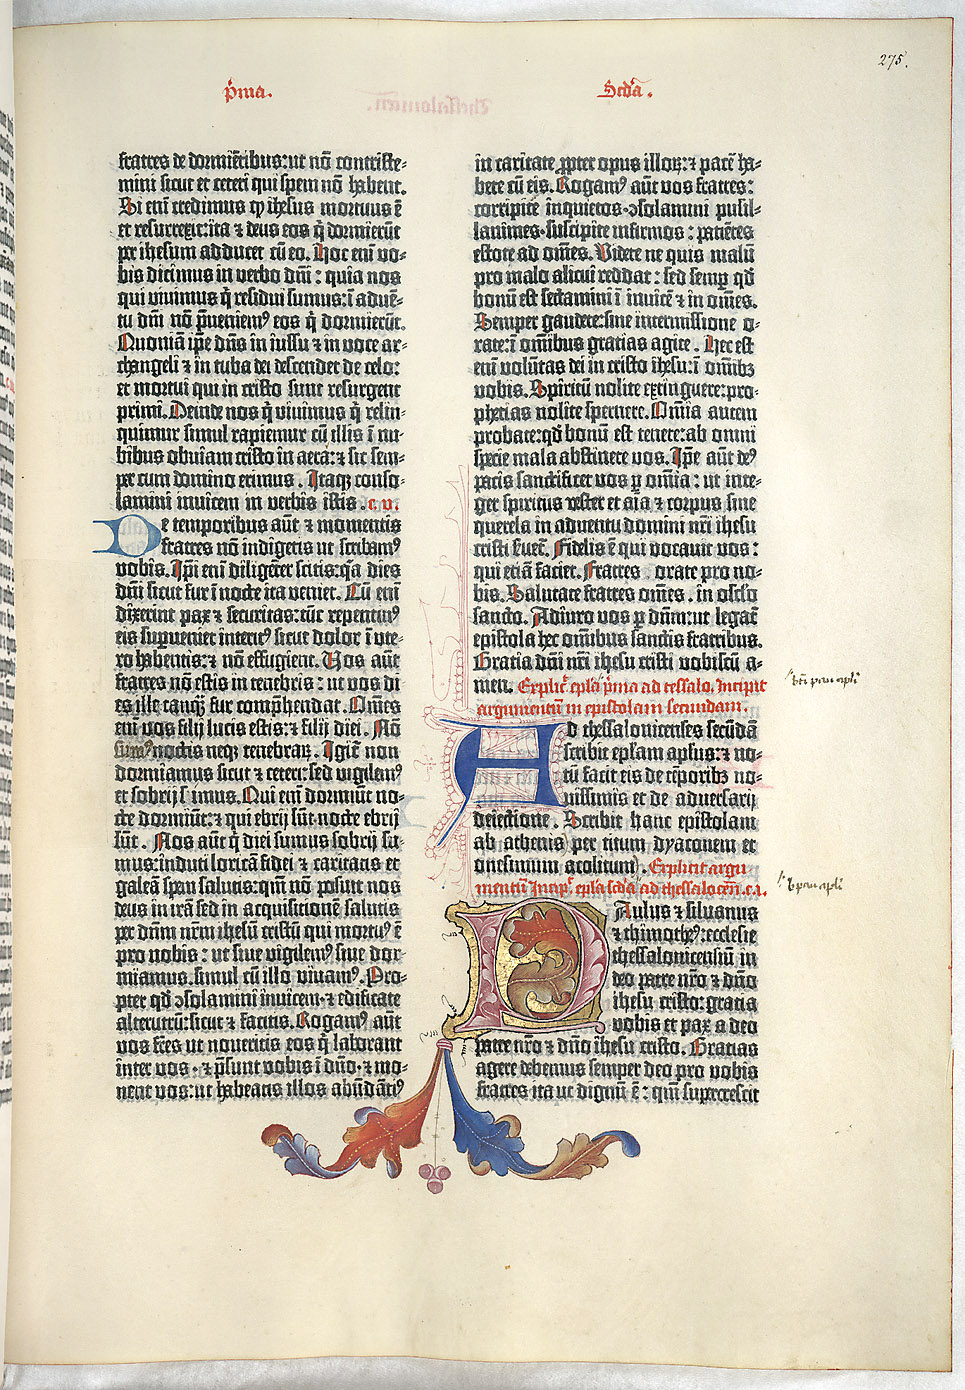 275.
p̄ma.
Scd̄a.
fratres de dormiētibus: ut nō contriste-
mini sicut et ceteri qui spem nō habent.
Si enī credimus ꝙ ihesus mortuus ē
et resurrexit: ita ⁊ deus eos q̄ dormierūt
per ihesum adducet cū eo. Hoc enī vo-
bis dicimus in verbo dn̄i: quia nos
qui vivimus q̄ residui sumus: ī advē-
tu dn̄i nō p̄veniemꝰ eos q̄ dormierūt.
Quoniā ip̄e dn̄s in iussu ⁊ in voce ar-
changeli ⁊ in tuba dei descendet de celo:
et mortui qui in cristo sunt resurgent
primi. Deinde nos q̄ vivimus q̄ relin-
quimur simul rapiemur cū illis ī nu-
bibus obviam cristo in aera: ⁊ sic sem-
per cum domino erimus. Itaqꝫ conso-
lamini invicem in verbis istis. c. v.
De temporibus aūt ⁊ momentis
fratres nō indigetis ut scribamꝰ
vobis. Ip̄i enī diligēter scitis: q̄a dies
dn̄i sicut fur ī nocte ita veniet. Cū enī
dixerint pax ⁊ securitas: tūc repentinꝰ
eis superveniet interitꝰ sicut dolor ī ute-
ro habentis: ⁊ nō effugient. Vos aūt
fratres nō estis in tenebris: ut vos di
es ille tanqꝫ fur comp̄hendat. Om̄es
enī vos filij lucis estis: ⁊ filij diei. Nō
sumꝰ noctis neqꝫ tenebraꝝ. Igit̄ non
dormiamus sicut ⁊ ceteri: sed vigilemꝰ
et sobrij simus. Qui enī dormiūt no-
cte dormiūt: ⁊ qui ebrij sūt nocte ebrij
sūt. Nos aūt q̄ diei sumus sobrij si-
mus: induti loricā fidei ⁊ caritatis et
galeā spem salutis: qm̄ nō posuit nos
deus in irā sed in acquisitionē salutis
per dn̄m nr̄m ihesū cristū qui mortuꝰ ē
pro nobis: ut sive vigilemꝰ sive dor
miamus. simul cū illo vivamꝰ. Pro-
pter qd̄ ꝯsolamini invicem ⁊ edificate
alterutrū: sicut ⁊ facitis. Rogamꝰ aūt
vos fr̄es ut noveritis eos q̄ laborant
inter vos ⁊ p̄sunt vobis ī dn̄o ⁊ mo-
nent vos: ut habeatis illos abūdātiꝰ
in caritate ꝓpter opus illoꝝ: ⁊ pacē ha-
bete cū eis. Rogamꝰ aūt vos fratres:
corripite inquietos ꝯsolamini pusil-
lanimes suscipite infirmos: patiētes
estote ad om̄es. Videte ne quis malū
pro malo alicui reddat: sed semꝑ qd̄
bonū est sectamini ī invicē ⁊ in om̄es.
Semper gaudete: sine intermissione o-
rate: ī om̄ibus gratias agite. Hec est
enī volūtas dei in cristo ihesu: ī om̄ibꝫ
vobis. Spiritū nolite extinguere: pro-
phetias nolite spernere. Om̄ia autem
probate: qd̄ bonū est tenete: ab omni
specie mala abstinete vos. Ip̄e aūt deꝰ
pacis sanctificet vos ꝑ om̄ia: ut inte-
ger spiritus vester et aīa ⁊ corpus sine
querela in adventu domini nr̄i ihesu
cristi ẜvet̄. Fidelis ē qui vocavit vos:
qui etiā faciet. Fratres: orate pro no-
bis. Salutate fratres om̄es. in osc̄lo
sancto. Adiuro vos ꝑ dn̄m: ut legat̄
epistola hec om̄ibus sanctis fratribus.
Gratia dn̄i nr̄i ihesu cristi vobiscū a-
men. Explic̄ ep̄la p̄ma ad tessalo. Incipit
argumentū in epistolam secundam.
Ad thessalonicenses secūdā
scribit ep̄lam apl̄us: ⁊ no-
tū facit eis de tēporibꝫ no-
vissimis et de adversarij
deiectione. Scribit hanc epistolam
ab athenis per titum dyaconem et
onesimum acolitum. Explicit argu
mentū Incip̄ ep̄la sc̄da ad thessalocen̄. c. i.
Paulus ⁊ silvanus
⁊ thimotheꝰ: ecclesie
thessalonicensiū in
deo patre nr̄o ⁊ dn̄o
ihesu cristo: gratia
vobis et pax a deo
patre nr̄o ⁊ dn̄o ihesu cristo. Gratias
agere debemus semper deo pro vobis
fratres ita ut dignū ē: qm̄ supercrescit